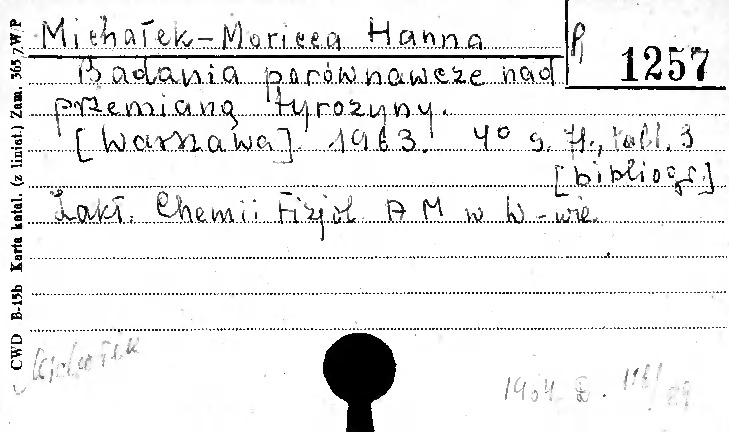 Michałek-Moricca Hanna
R 1257
Badania porównawcze nad
przemianą tyrozyny.
[Warszawa] 1963. 4° s. 71, tabl. 3
[bibliogr.]
Zakł. Chemii Fizjol. A M w W-wie.
CWD B-15b Karta katal. (z liniat.) Zam. 365 7/W/P
Michałek